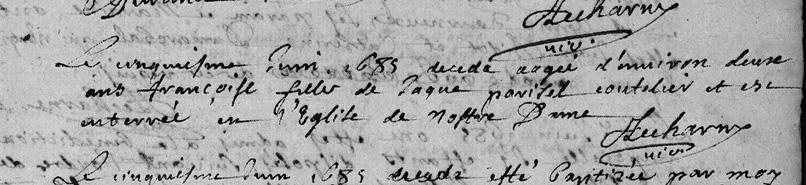 Le cinquiesme Juin 1685 deceda aagée d'environ deux
ans françoise fille de Jaque parisel coutelier et est
interrée en l'Eglise de Nostre Dame
Le cinquiesme Juin 1685 deceda esté baptizée par moy